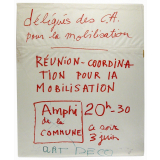 délégués des C.A.
pour la mobilisation
RÉUNION-COORDINA
TION POUR LA
MOBILISATION
Amphi
de la
COMMUNE
20h-30
ce soir
3 juin